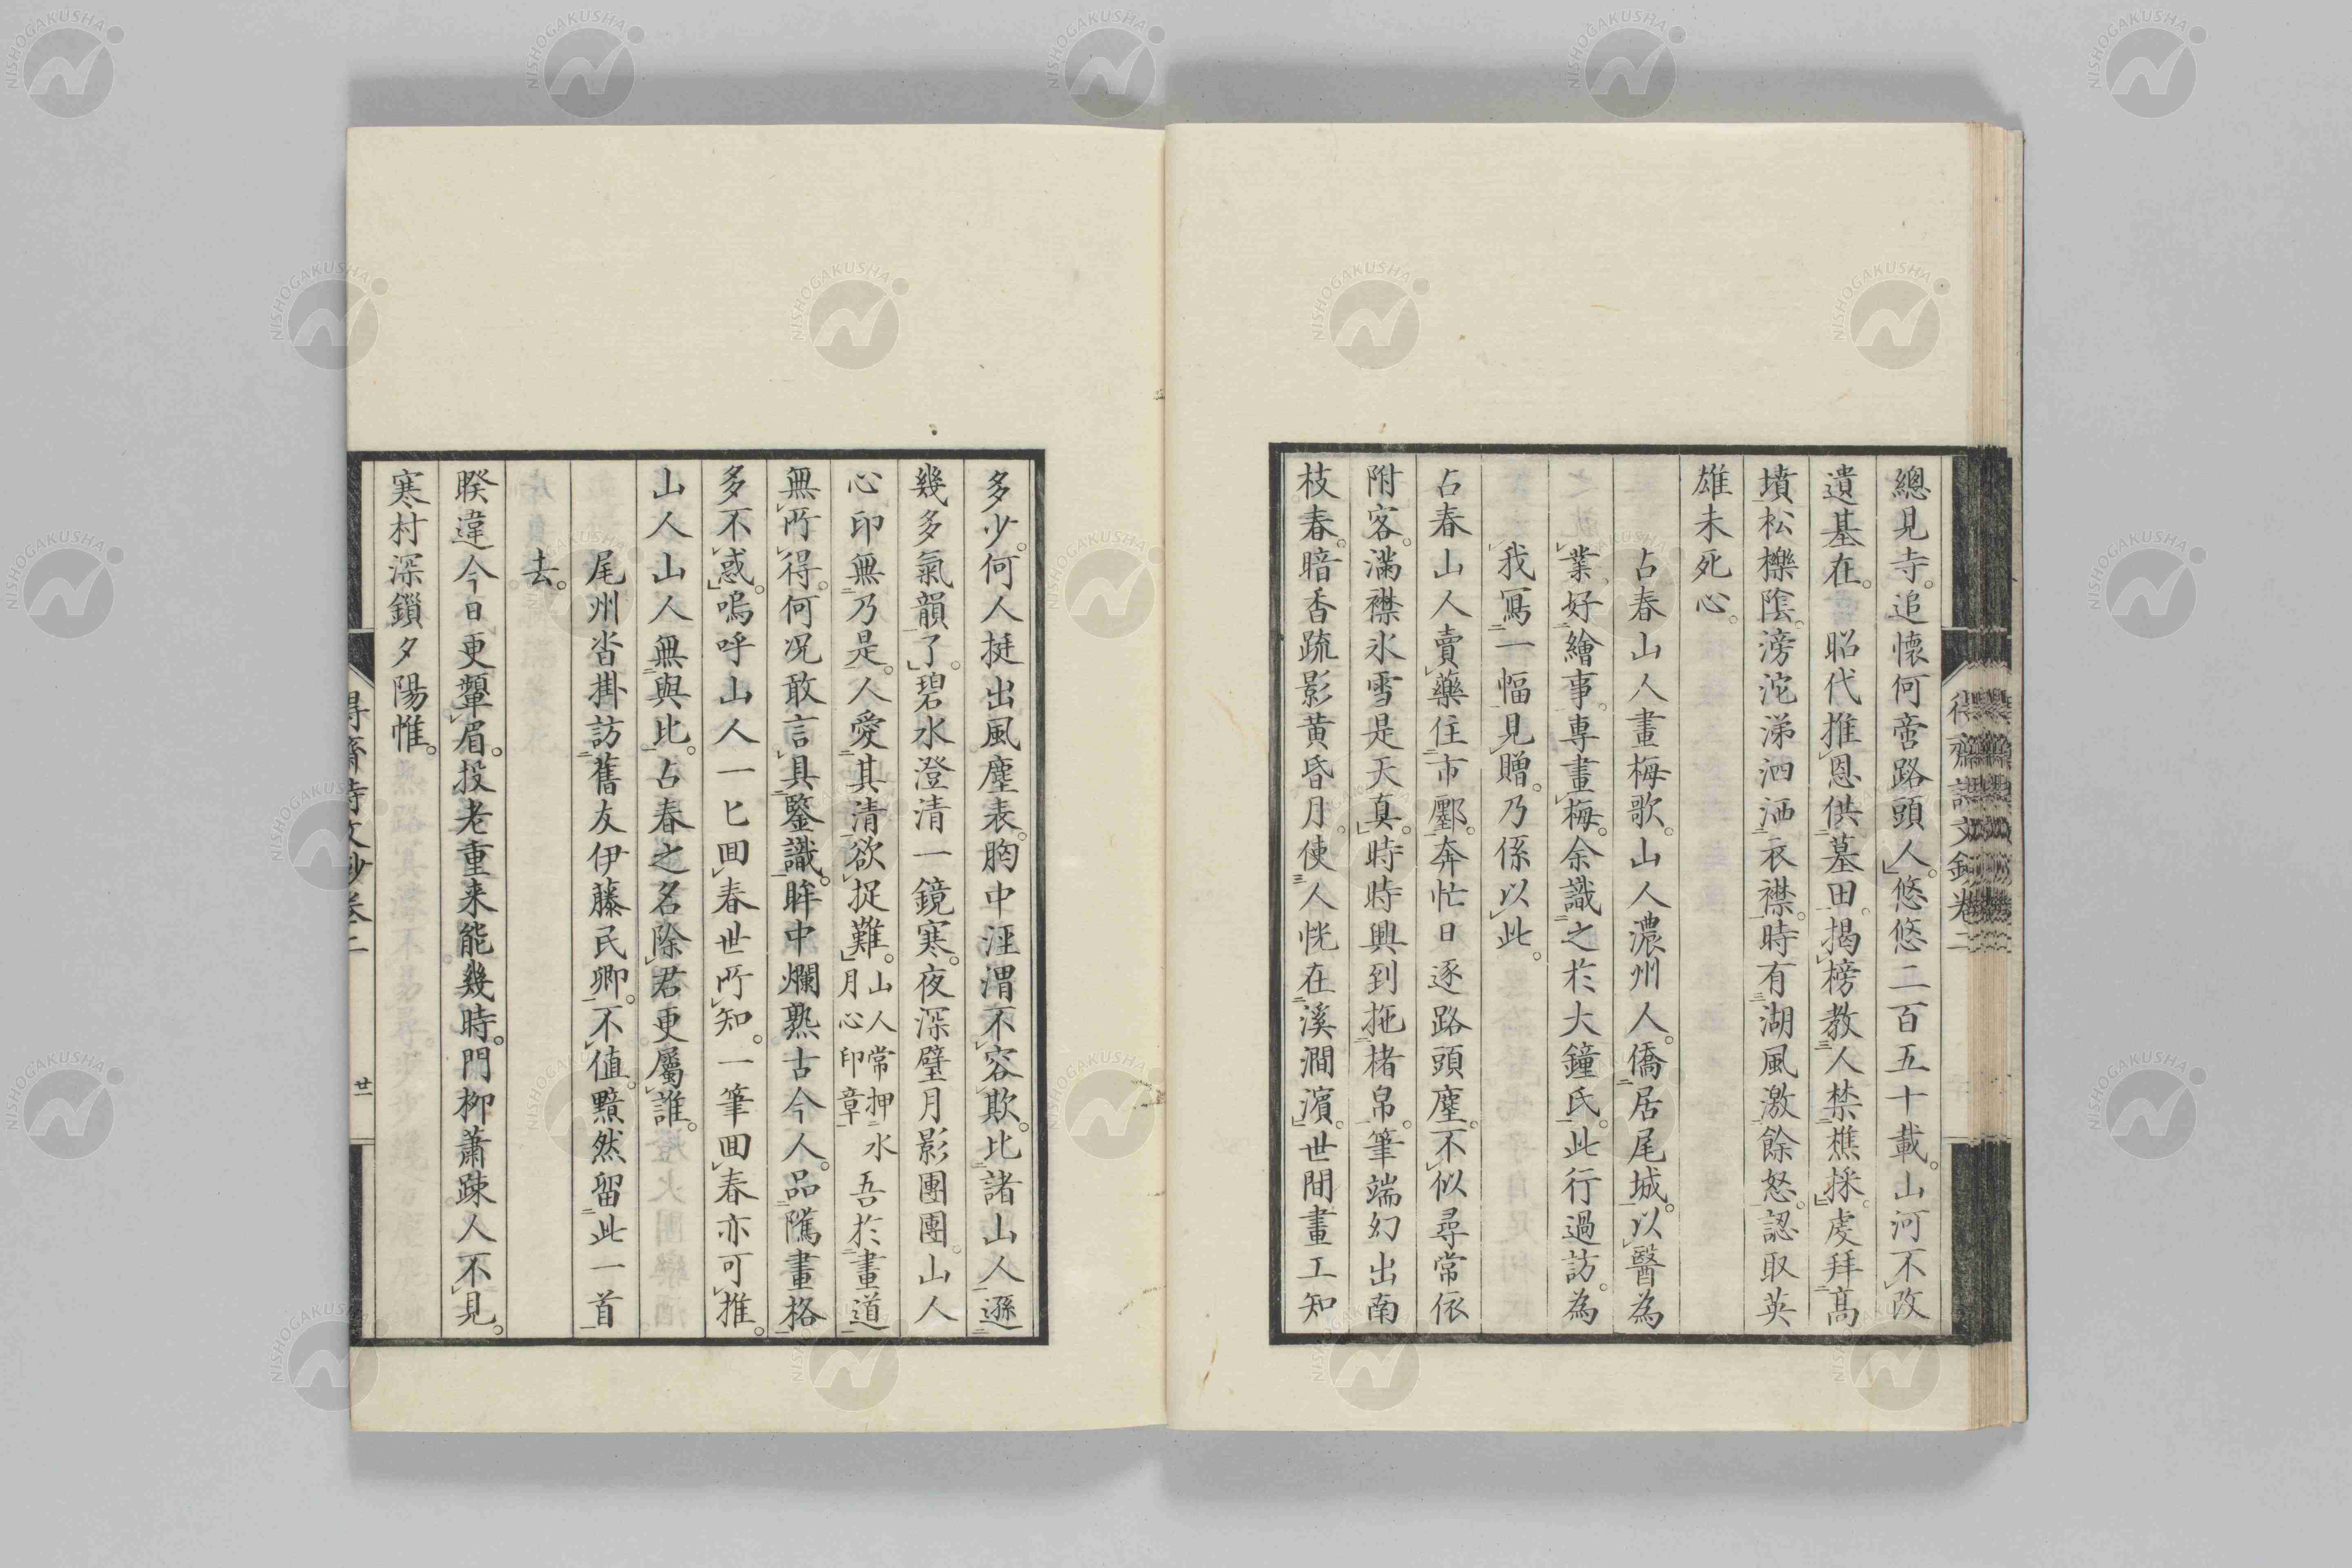 總見寺。追懷何啻路頭人。悠悠二百五十載。山河不改
遺基在。昭代推恩供墓田。揭榜教人禁樵採。虔拜高
墳松櫟陰。滂沱涕泗洒衣襟。時有湖風激餘怒。認取英
雄未死心。
占春山人畫梅歌。山人濃州人。僑居尾城。以醫為
業。好繪事。專畫梅。余識之於大鐘氏。此行過訪。為
我寫一幅見贈。乃係以此。
占春山人賣藥住市酆。奔忙日逐路頭塵。不似尋常依
附客。滿襟氷雪是天真。時時興到拖楮帛。筆端幻出南
枝春。暗香疏影黄昏月。使人恍在溪澗濱。世間畫工知
多少。何人挺出風塵表。胸中涇渭不容欺。比諸山人遜
幾多氣韻了。碧水澄清一鏡寒。夜深璧月影團團。山人
心印無乃是。人愛其清欲捉難。山人常押水月心印章吾於畫道
無所得。何況敢言具鑒識。眸中爛熟古今人。品隲畫格
多不惑。嗚呼山人一匕回春世所知。一筆回春亦可推。
山人山人無與比。占春之名除君更屬誰。
尾州沓掛訪舊友伊藤民卿。不值。黯然留此一首
去。
睽違今日更顰眉。投老重来能幾時。門柳蕭疎人不見。
寒村深鎖夕陽帷。
得齋詩文鈔卷二
廿一
得齋詩文鈔卷二
NISHOGAKUSHA